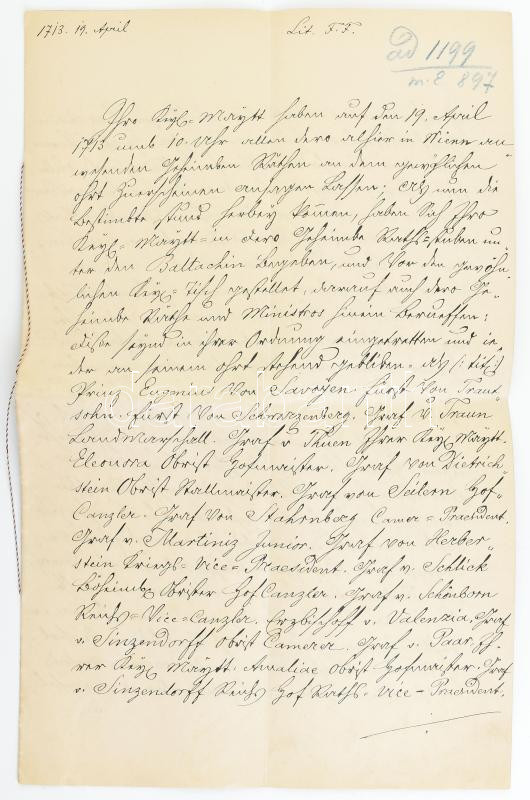 1713. 19. April
Lit. F. F.
ad 1199
m. E 897
Ihro Kayl= Maytt haben auf den 19. April
1713 umb 10. Uhr allen dero alhier in Wienn an=
wesenden Geheimben Räthen an dem gewöhlichen
ohrt zuerscheinen ansagen Lassen; Als nun die
Bestimbte stund herbey kommen, haben Sich Ihro
Kayl= Maytt= in dero Geheimbe Raths=stuben un=
ter den Baltachin begeben, und Vor den gewöhn=
lichen Kayl= Tisch gestellet, darauf auch dero Ge=
heimbe Räthe und Ministros hinein berueffen;
diße seynd in ihrer Ordnung eingetretten und ie=
der an seinem ohrt stehend gebliben. als /: tit: /
Prinz Eugenius Von Savoyen. Fürst Von Traut=
sohn. Fürst Von Schwarzenberg. Graf v. Traun
LandMarschall. Graf v Thuen Ihrer Kayl Maytt.
Eleonora Obrist Hofmaister. Graf von Dietrich=
stein Obrist Stallmaister. Graf von Seilern Hof=
Canzler. Graf Von Stahrnberg Camer=Praesident.
Graf v. Martiniz Junior. Graf von Herber=
stein Kriegs=Vice=Praesident. Graf v. Schlick
Böheimbl Obrister HofCanzler. Graf v. Schönborn
Reichs=Vice=Canzler. Erzbischoff v. Valenzia. Graf
v. Sinzendorff Obrist Camerer. Graf v. Paar, Ih=
rer Kayl Maytt. Amaliae Obrist=Hofmaister. Graf
v. Sinzendorff Reichs Hof Raths=Vice=Praesident.